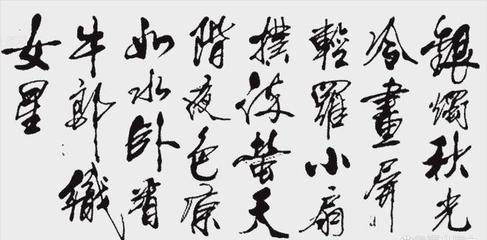 銀燭秋光
冷畫屏
輕羅小扇
撲流螢天
階夜色涼
如水臥看
牛郎織
女星